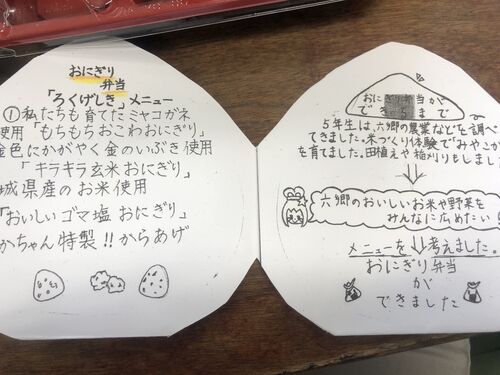 おにぎり
弁当
「ろくげしき」メニュー
①私たちも育てたミヤコガネ
使用「もちもちおこわおにぎり」
金色にかがやく金のいぶき使用
「キラキラ玄米おにぎり」
城県産のお米使用
「おいしいゴマ塩おにぎり」
かちゃん特製!!からあげ
おにぎり弁当が
できるまで
5年生は、六郷の農業などを調べ
てきました。米づくり体験で「みやこが
を育てました。田植えや稲刈りもしまし
六郷のおいしいお米や野菜を
みんなに広めたい!
メニューを考えました。
おにぎり弁当
が
できました